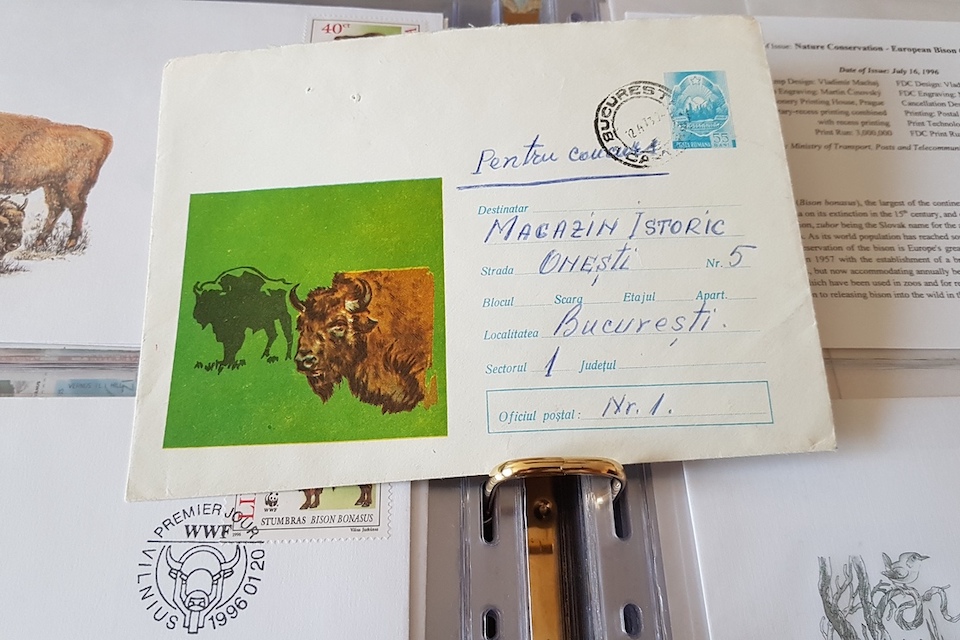 40ct
BUCUREȘTI
12.4.75
POSTA ROMANA
55 BANI
Pentru concurs
Destinatar
MAGAZIN ISTORIC
Strada ONEȘTI Nr. 5
Blocul Scara Etajul Apart.
Localitatea București.
Sectorul 1 Județul
Oficiul poștal: Nr. 1.
Issue: Nature Conservation - European Bison
Date of Issue: July 16, 1996
Design: Vladimír Machaj FDC Design:
Engraving: Martin Činovský FDC Engraving:
Printing House, Prague Cancellation
excess printing Printing: Postal
with recess printing. Print
Print Run: 3,000,000 FDC Print
Ministry of Transport, Posts and
(Bison bonasus), the largest of the
on its extinction in the 15th century, and
zubor being the Slovak name for the
As its world population has reached
conservation of the bison is Europe's
1957 with the establishment of a
but now accommodating annually
which have been used in zoos and for
to releasing bison into the wild in
WWF
STUMBRAS BISON BONASUS
1996
PREMIER JOUR
WWF
VILNIUS 1996 01 20